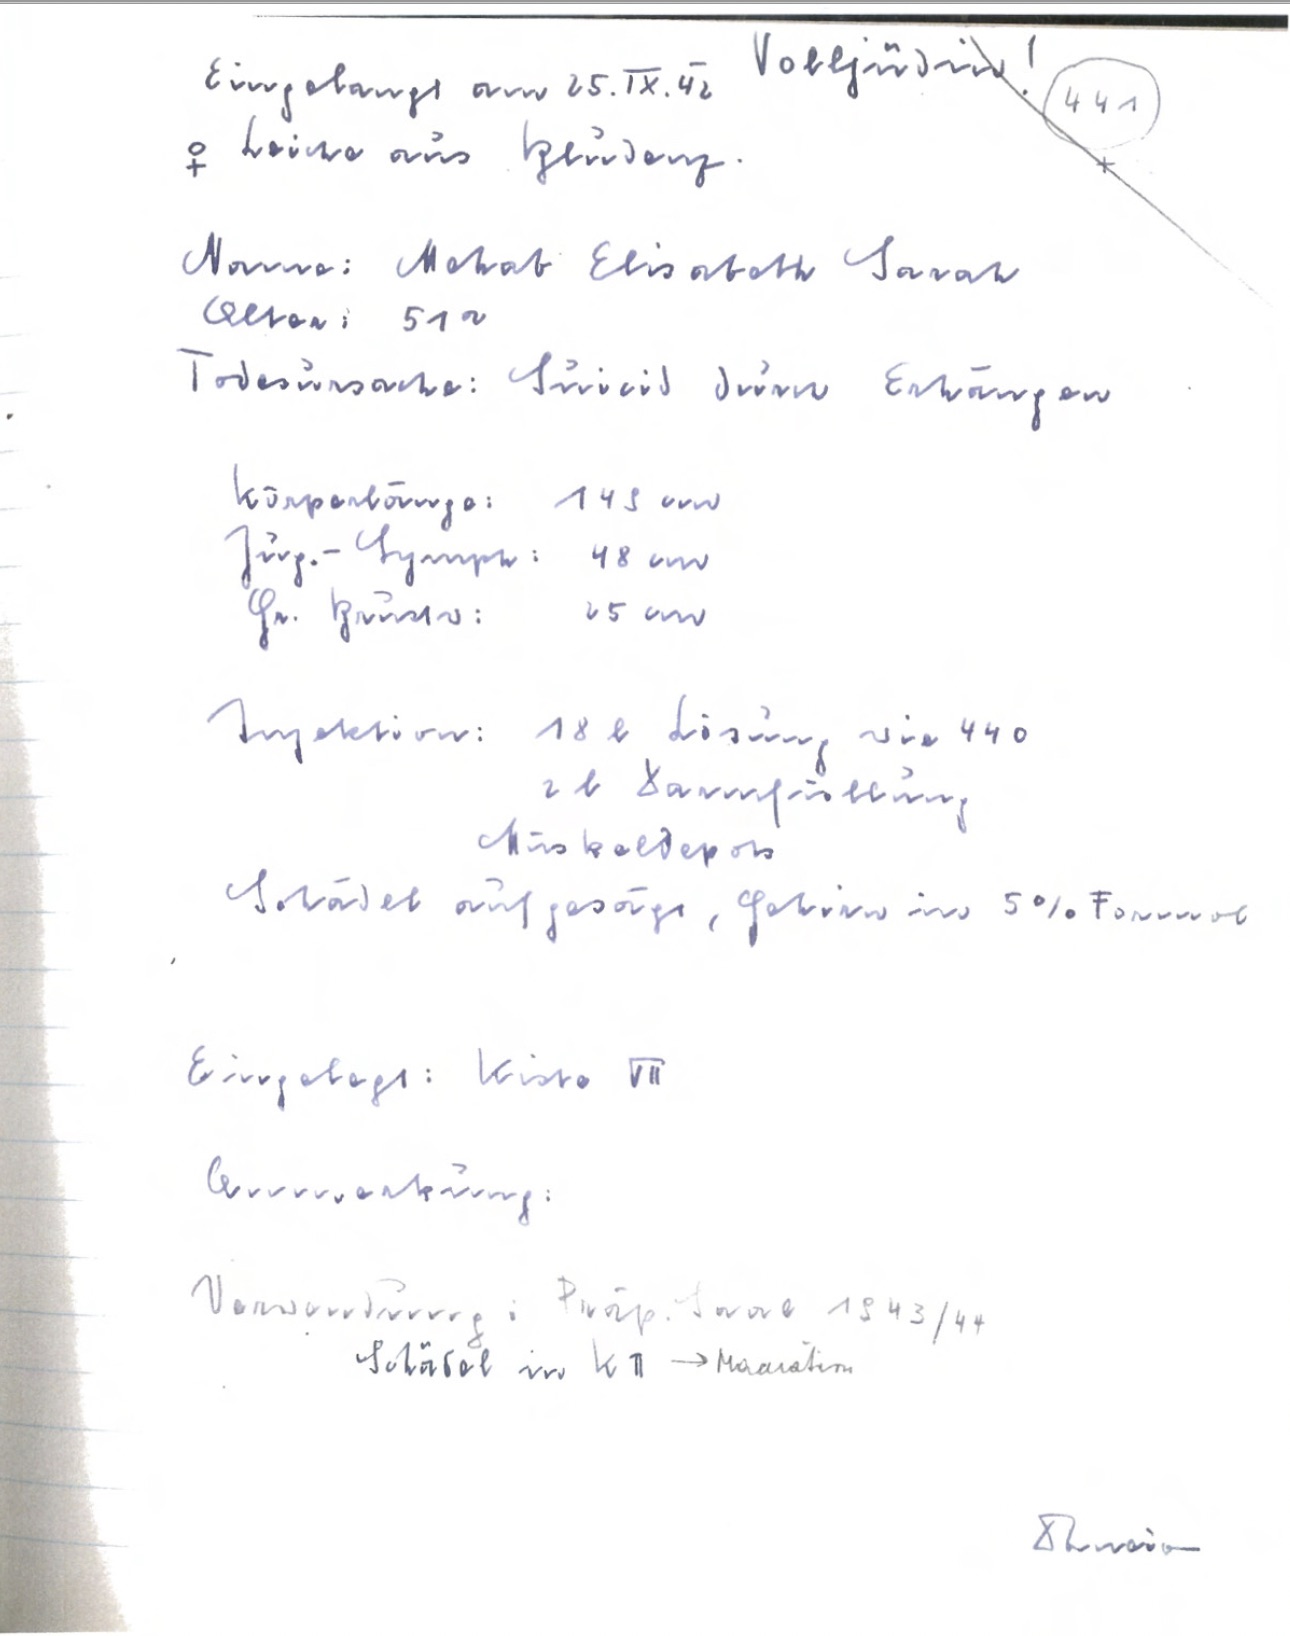 Eingelangt am 25.IX.42 Volljüdin!
441
♀ Leiche aus Bludenz.
Name: Mehab Elisabeth Sarah
Alter: 51a
Todesursache: Suicid durch Erhängen
Körperlänge: 149 cm
Jug.-Symph: 48 cm
Gr. Brüste: 25 cm
Injektion: 18 l Lösung wie 440
2 l Darmfüllung
Muskeldepots
Schädel aufgesägt, Gehirn in 5% Formol
Eingelegt: Kiste VII
Anmerkung:
Verwendung: Präp. Saal 1943/44
Schädel in K II → Maceration